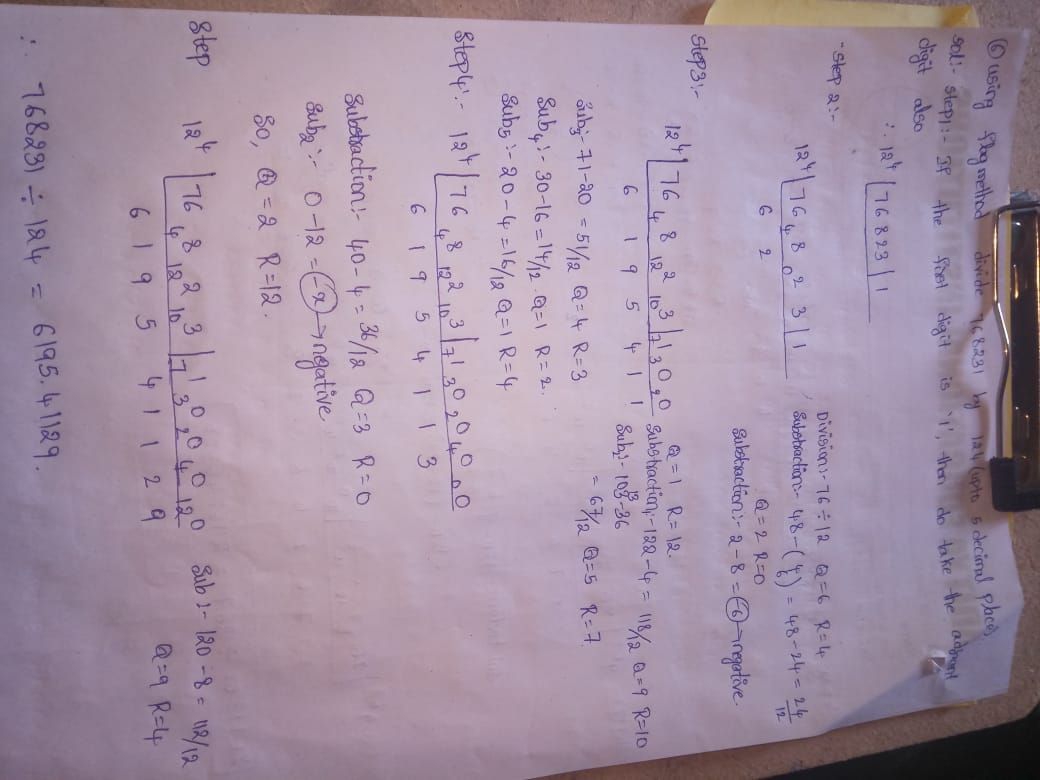 ⑥ using flag method divide 768231 by 124 (upto 5 decimal places)
sol:- step1:- If the first digit is '1', then do take the adjacent
digit also
∴ 12⁴ | 76 8 2 3 | 1
- Step 2:-
12⁴ | 76 ₄8 ₀2 3 | 1
6 2
Division:- 76 ÷ 12 Q=6 R=4
Substraction:- 48 - (4 6) = 48 - 24 = 24/12
Q = 2 R=0
Substraction:- 2 - 8 = -6 → negative.
Step3:-
12⁴ | 76 ₄8 ₁₂2 ₁₀3 | ₇1 ₃0 ₂0
6 1 9 5 4 1 1
Q=1 R=12.
Substraction:- 122 - 4 = 118/12 Q=9 R=10
Sub₂:- 103 - 36
= 67/12 Q=5 R=7
Sub₃:- 71-20 = 51/12 Q=4 R=3
Sub₄:- 30-16 = 14/12 Q=1 R=2.
Sub₅:- 20-4 = 16/12 Q=1 R=4
Step4:- 12⁴ | 76 ₄8 ₁₂2 ₁₀3 | ₇1 ₃0 ₂0 ₄0 ₀0
6 1 9 5 4 1 1 3
Substraction:- 40 - 4 = 36/12 Q=3 R=0
Sub₂:- 0 - 12 = → negative
So, Q = 2 R=12.
Step 12⁴ | 76 ₄8 ₁₂2 ₁₀3 | ₇1 ₃0 ₂0 ₄0 ₁₂0
6 1 9 5 4 1 1 2 9
Sub :- 120 - 8 = 112/12
Q=9 R=4
∴ 768231 ÷ 124 = 6195.41129.